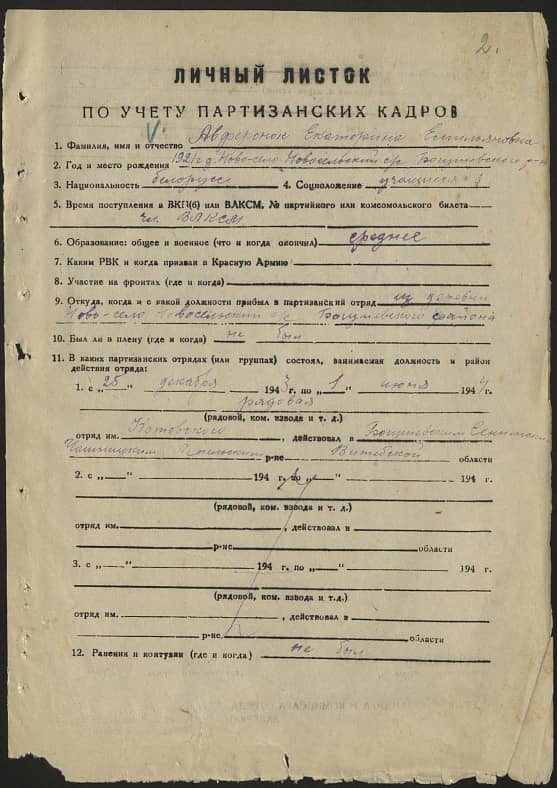 2.
ЛИЧНЫЙ ЛИСТОК
ПО УЧЕТУ ПАРТИЗАНСКИХ КАДРОВ
1. Фамилия, имя и отчество Авферонок Екатерина Емельяновна
2. Год и место рождения 1921 г д. Ново-село Новосельский с/с Богушевского р-н
3. Национальность белорусс 4. Соцположение учащийся
5. Время поступления в ВКП(б) или ВЛКСМ, № партийного или комсомольского билета
чл. ВЛКСМ
6. Образование: общее и военное (что и когда окончил) среднее
7. Каким РВК и когда призван в Красную Армию
8. Участие на фронтах (где и когда)
9. Откуда, когда и с какой должности прибыл в партизанский отряд из деревни
Ново-село Новосельский с/с Богушевского района
10. Был ли в плену (где и когда) не был
11. В каких партизанских отрядах (или группах) состоял, занимаемая должность и район
действия отряда:
1. с „25" декабря 1943 г. по „1" июня 1944 г.
рядовая
(рядовой, ком. взвода и т. д.)
отряд им. Котовского, действовал в Богушевским Сенненским
Чашницким Лепельским р-не Витебской области
2. с „ " 194 г. по „ " 194 г.
(рядовой, ком. взвода и т. д.)
отряд им. , действовал в
р-не области
3. с „ " 194 г. по „ " 194 г.
(рядовой, ком. взвода и т.д.)
отряд им. , действовал в
р-не области
12. Ранения и контузии (где и когда) не был